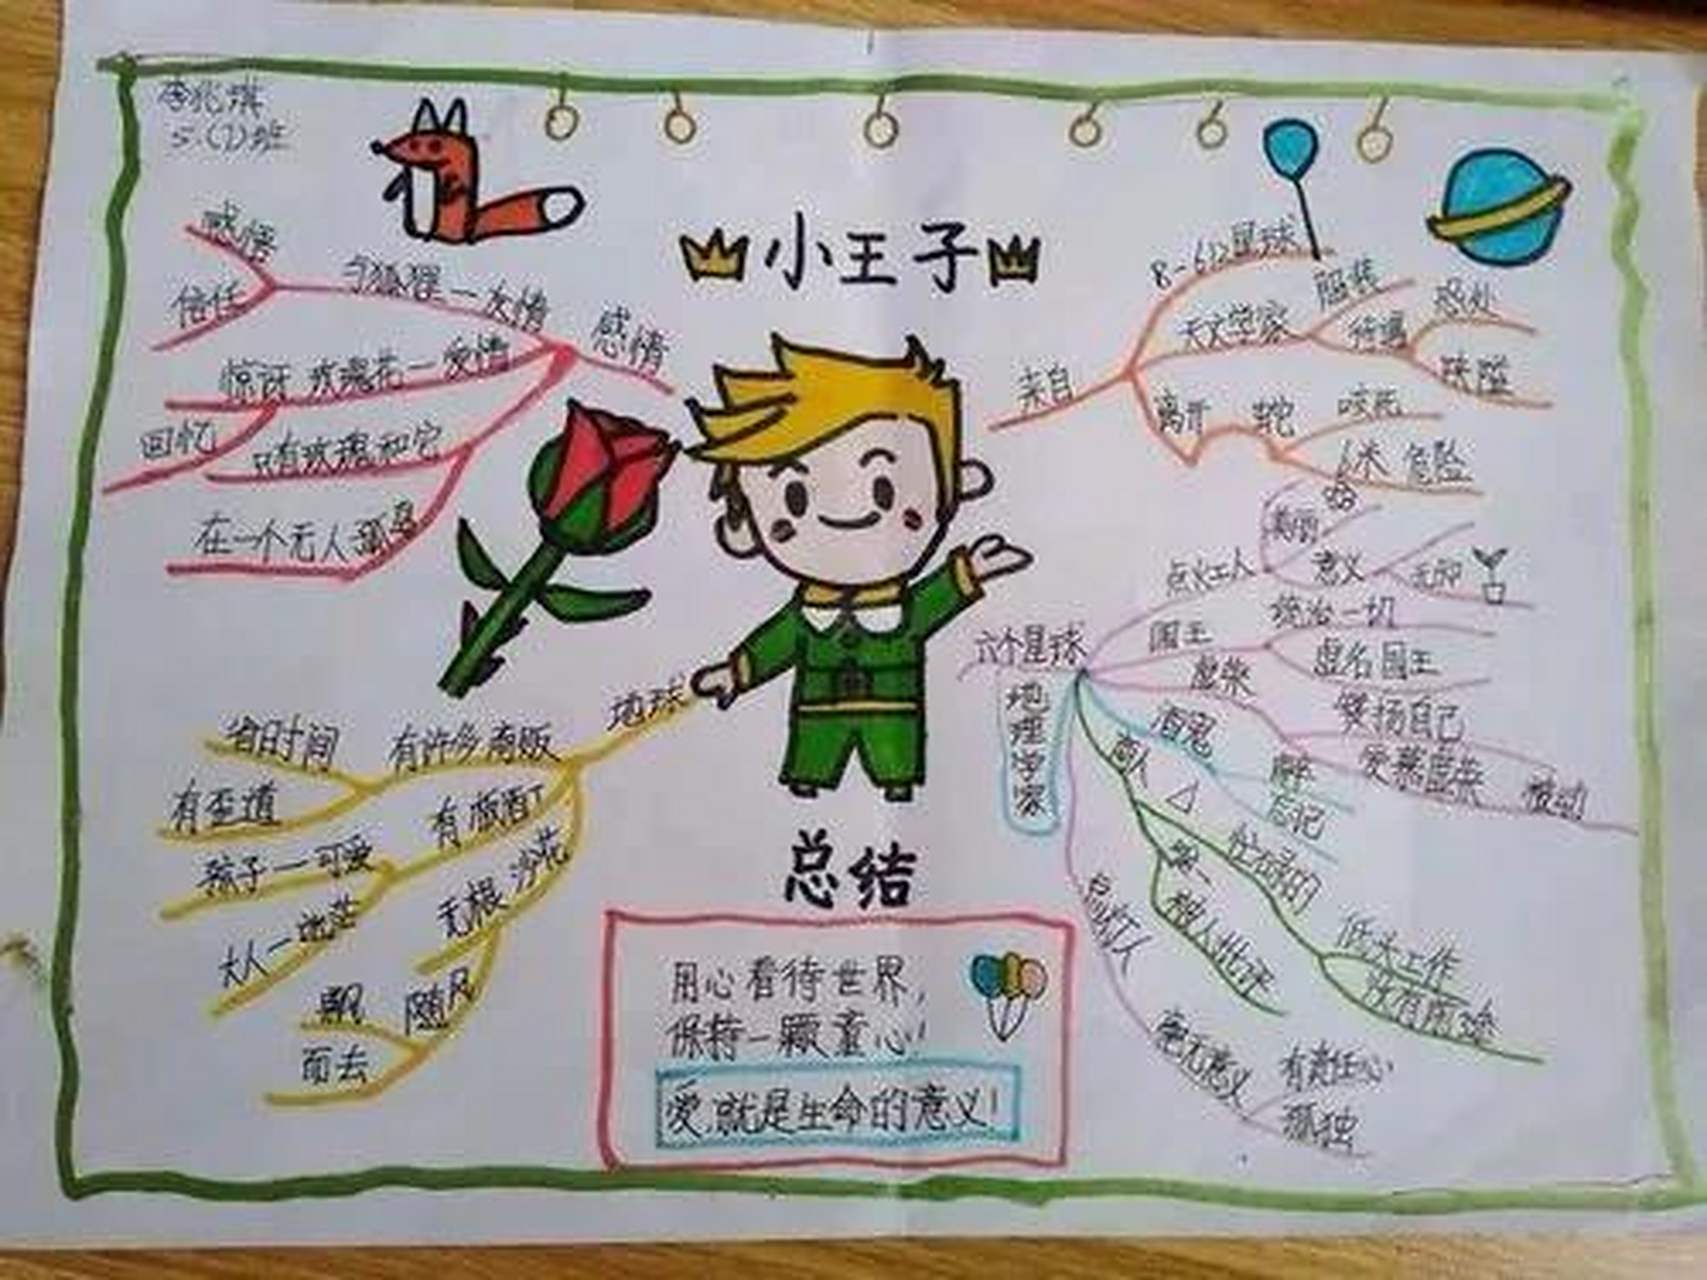 李兆琪
5.(1)班
小王子
感情
与狐狸一友情
感悟
信任
玫瑰花一爱情
惊讶
回忆
只有玫瑰和它
在一个无人
来自
星球
天文学家
服装
待遇
离开
蛇
咬死
危险
六个星球
点灯人
美丽
意义
国王
统治一切
虚名国王
虚荣
赞扬自己
爱慕虚荣
被动
酒鬼
醉
忘记
商人
忙碌的
低头工作
没有用途
唯一
被人批评
点灯人
毫无意义
有责任心
孤独
地理学家
地球
有许多商贩
省时间
有歪道
孩子一可爱
大人一
无根
沙花
随风
飘
而去
总结
用心看待世界,
保持一颗童心!
爱,就是生命的意义!